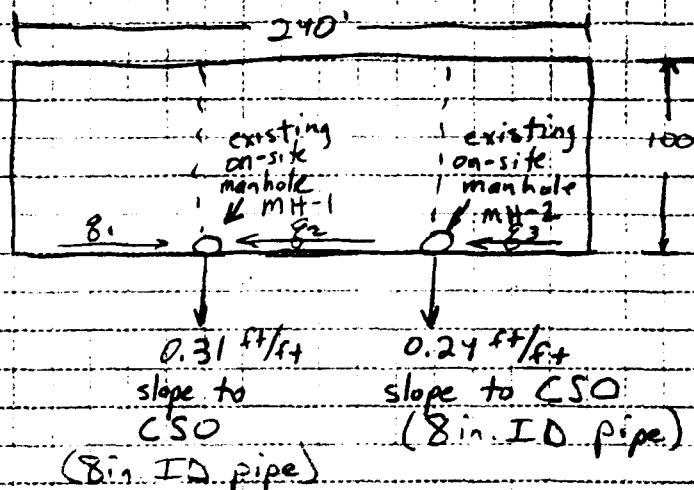 240'
existing
on-site
manhole
MH-1
existing
on-site
manhole
MH-2
100
q1
q2
q3
0.31 ft/ft
slope to
CSO
(8in. ID pipe)
0.24 ft/ft
slope to CSO
(8in. ID pipe)